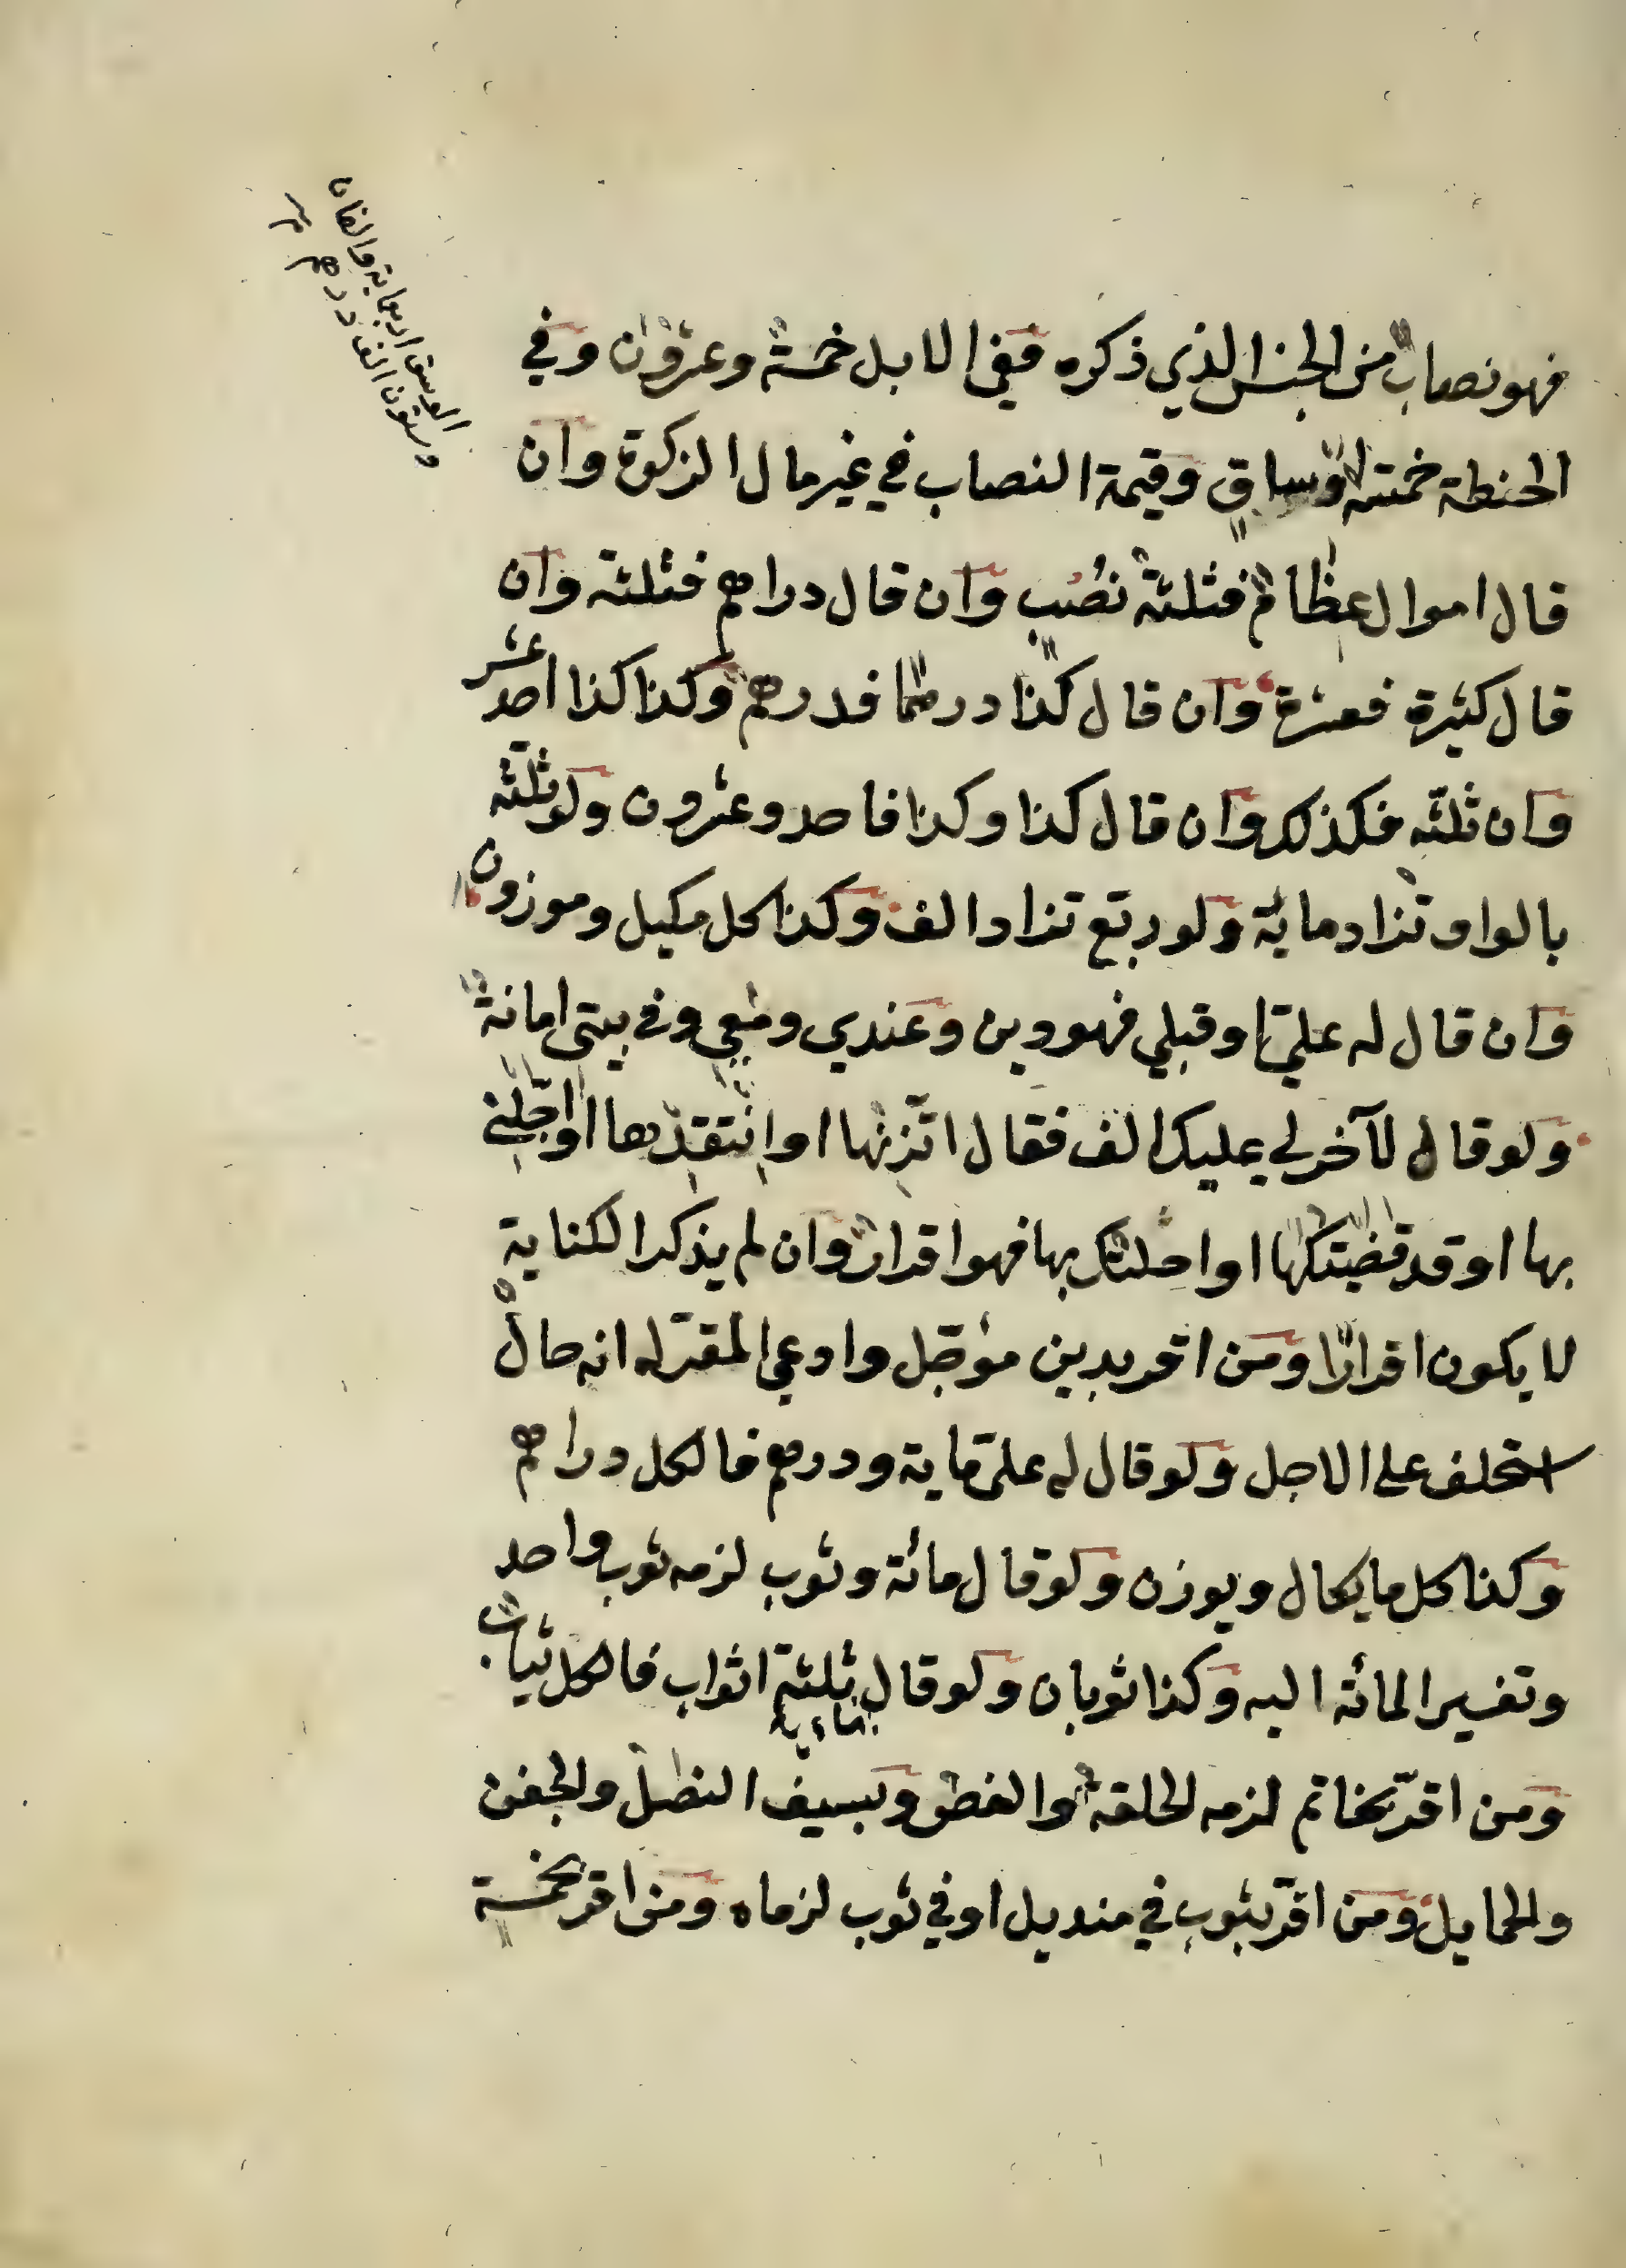 فهو نصابٌ من الجنس الذي ذكره ففي الابل خمسةٌ وعشرون وفي
الحنطة خمسة اوساقٍ وقيمة النصاب في غير مال الزكوة وان
قال اموال عظامٌ فثلثة نُصُبٍ وان قال دراهم فثلثة وان
قال كثيرة فعشرة وان قال كذا درهمًا فدرهم وكذا كذا احد عشر
وان ثلثه فكذلك وان قال كذا وكذا فاحد وعشرون ولو ثلثه
بالواو تزاد مائة ولو ربّع تزاد الف وكذا كل مكيل وموزون
وان قال له عليّ او قبلي فهو دين وعندي ومعي وفي بيتي امانةٌ
ولو قال لآخر لي عليك الف فقال اتّزنها او انتقدها او اجّلني
بها او قد قضيتكها او احلتك بها فهو اقرارٌ وان لم يذكر الكناية
لا يكون اقرارًا ومن اقر بدين مؤجّل وادعى المقرّ له انه حالٌّ
استحلف على الاجل ولو قال له عليّ ماية ودرهم فالكل دراهم
وكذا كل ما يكال ويوزن ولو قال مائة وثوب لزمه ثوب واحد
وتفسير المائة اليه وكذا ثوبان ولو قال ماية وثلثة اثواب فالكل ثيابٌ
ومن اقرّ بخاتم لزمه الحلقةُ والفصّ وبسيف النصل والجفن
والحمايل ومن اقرّ بثوب في منديل او في ثوب لزماه ومن اقر بخمسة
الوسق اربعماية والفان
وستون الف درهم